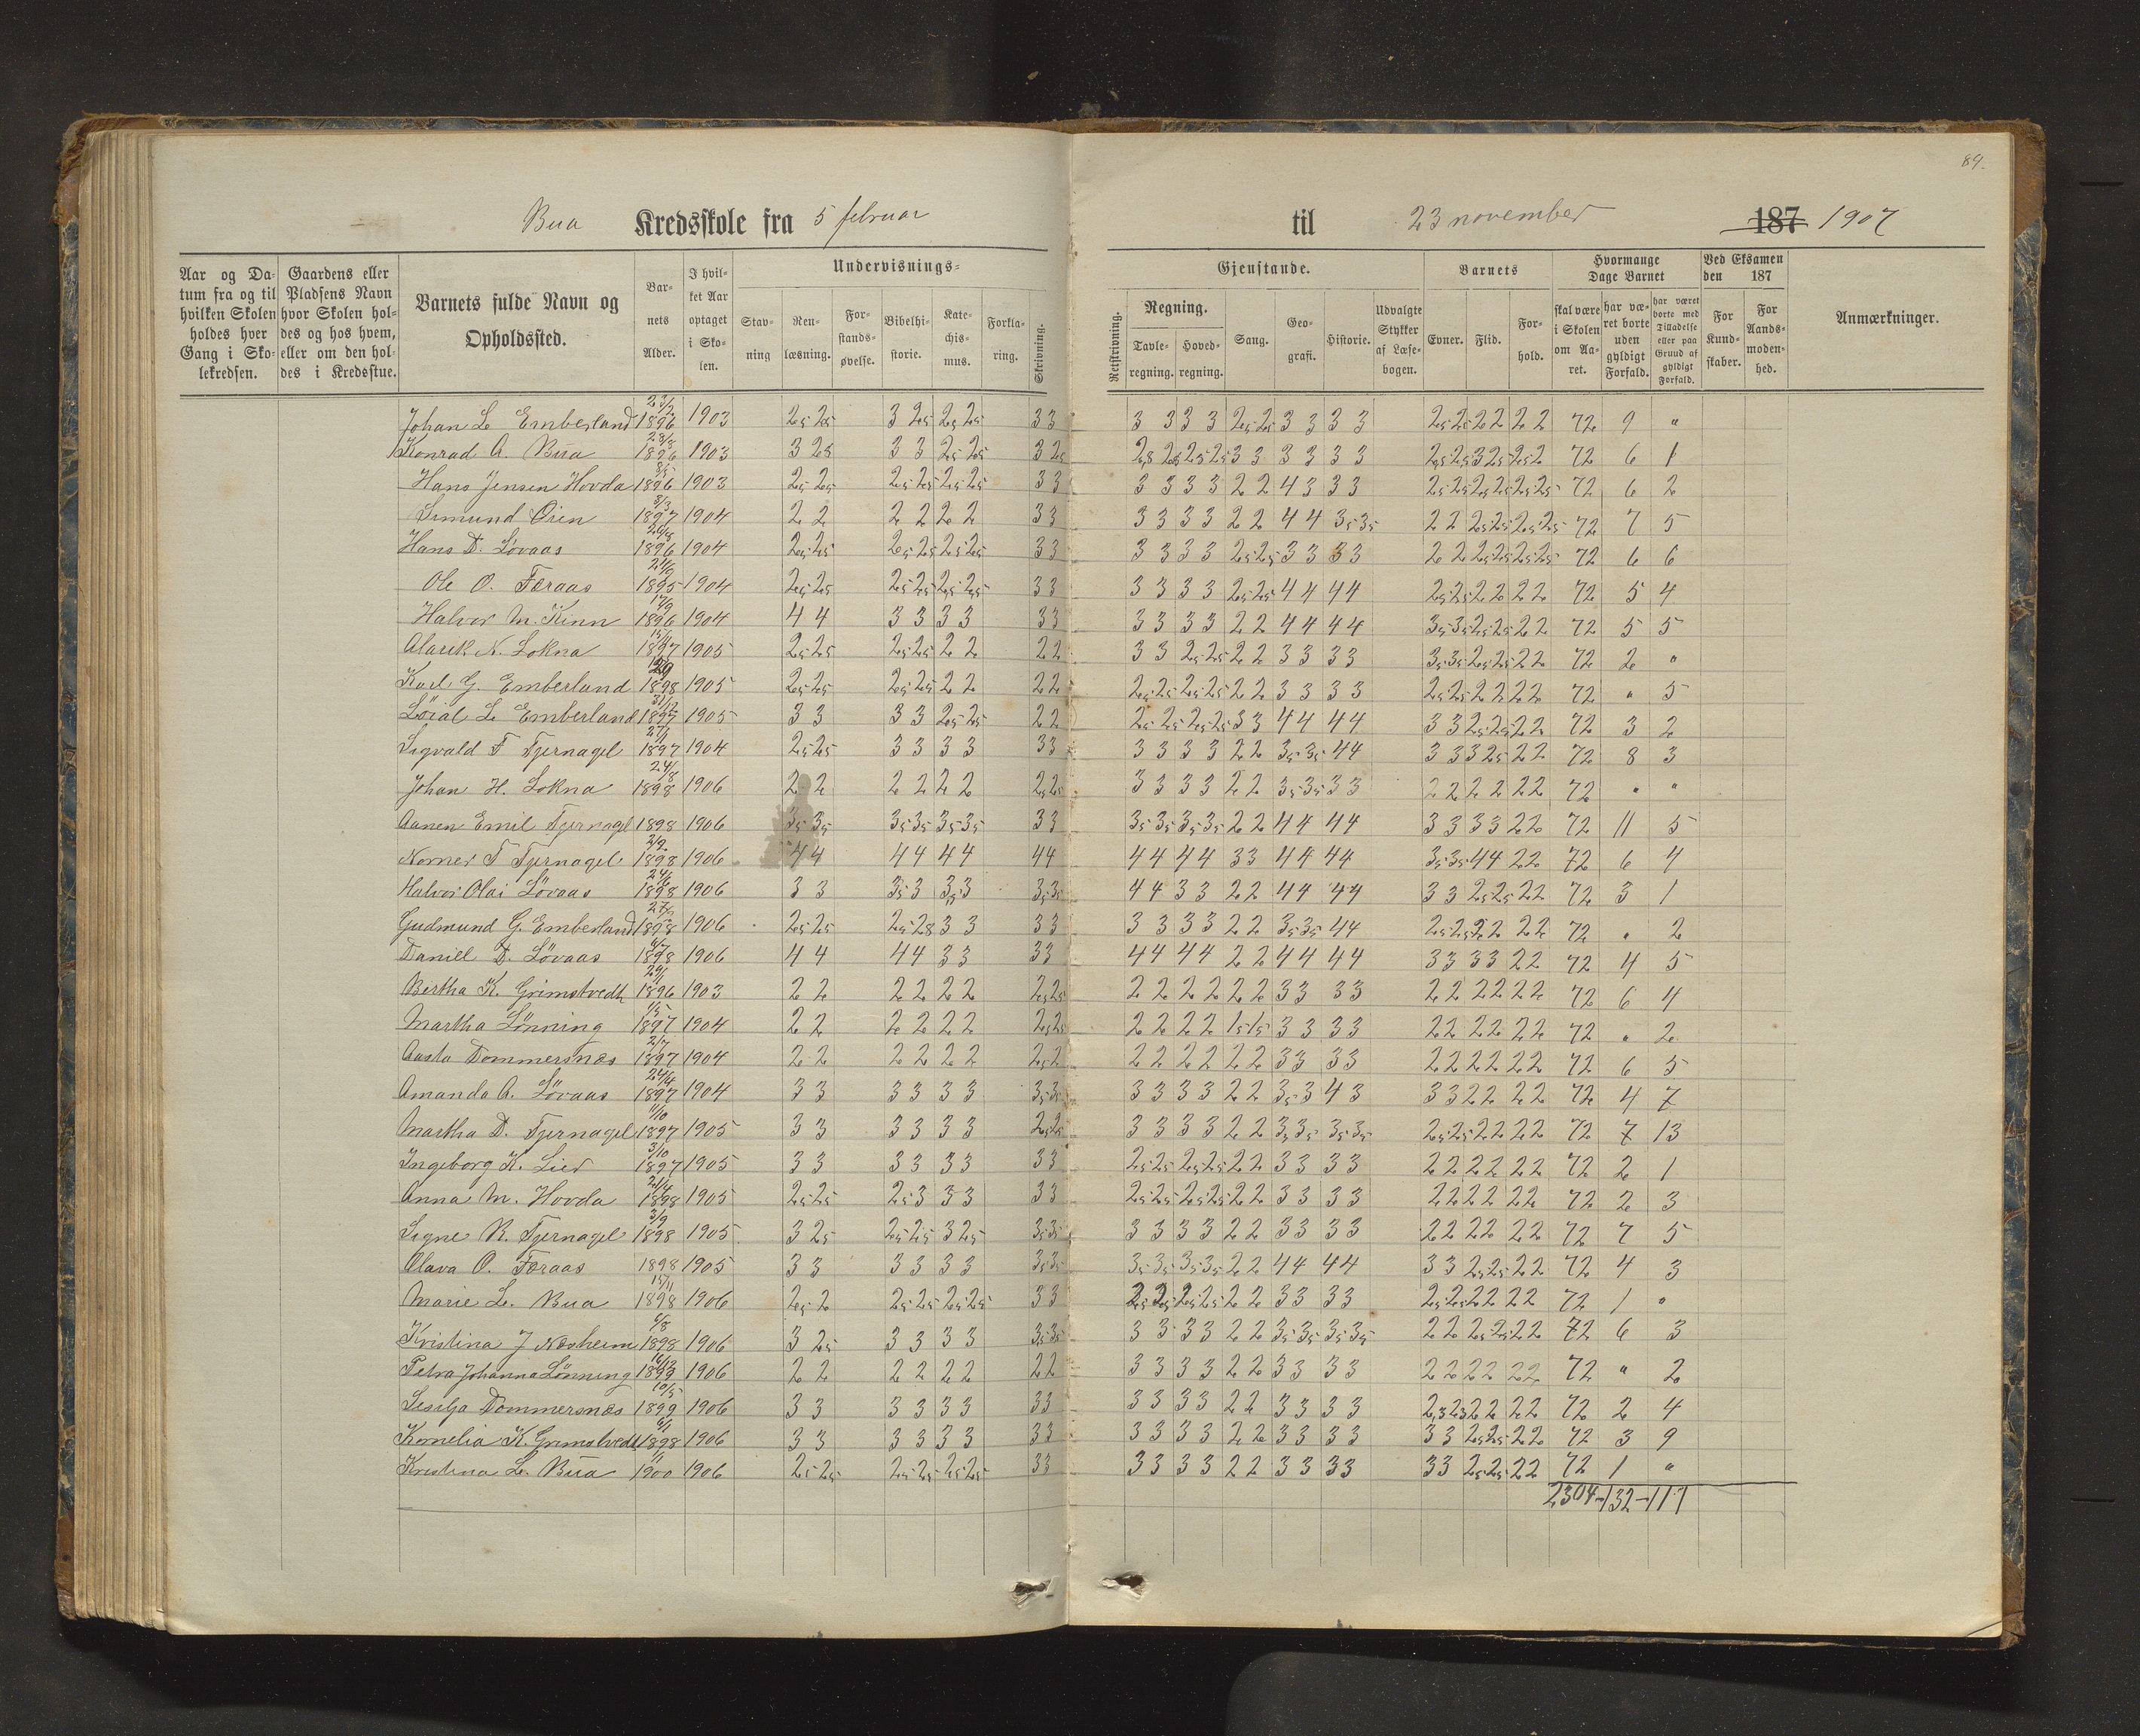 89.
Bua Kredsskole fra 5 februar til 23 november 187 1907
Aar og Datum fra og til hvilken Skolen holdes hver Gang i Skolekredsen.
Gaardens eller Pladsens Navn hvor Skolen holdes og hos hvem, eller om den holdes i Kredsstue.
Barnets fulde Navn og Opholdssted.
Barnets Alder.
I hvilket Aar optaget i Skolen.
Undervisnings= Gjenstande.
Stavning
Renlæsning.
Forstandsøvelse.
Bibelhistorie.
Katechismus.
Forklaring.
Skrivning.
Retskrivning.
Regning.
Tavleregning.
Hovedregning.
Sang.
Geografi.
Historie.
Udvalgte Stykker af Læsebogen.
Barnets
Evner.
Flid.
Forhold.
Hvormange Dage Barnet
skal være i Skolen om Aaret.
har været borte uden gyldigt Forfald.
har været borte med Tilladelse eller paa Grund af gyldigt Forfald.
Ved Eksamen den 187
For Kundskaber.
For Aandsmodenhed.
Anmærkninger.
Johan L Emberland 23/2 1896 1903 2,5 2,5 3 2,5 2,5 2,5 3 3 3 3 3 3 2,5 2,5 3 3 3 3 2,5 2,5 2 2 2 2 72 9 "
Konrad A. Bua 23/8 1896 1903 3 2,5 3 3 2,5 2,5 3 2,5 2,5 2,5 2,5 2,5 3 3 3 3 3 3 2,5 2,5 3 2,5 2,5 2 72 6 1
Hans Jensen Hovda 8/5 1896 1903 2,5 2,5 2,5 2,5 2,5 2,5 3 3 3 3 3 3 2 2 4 3 3 3 2,5 2,5 2,5 2,5 2,5 2,5 72 6 2
Simund Øien 8/3 1897 1904 2 2 2 2 2 2 3 3 3 3 3 3 2 2 4 4 3,5 3,5 2 2 2,5 2,5 2,5 2,5 72 7 5
Hans D. Løvaas 24/8 1896 1904 2,5 2,5 2,5 2,5 2,5 2,5 3 3 3 3 3 3 2,5 2,5 3 3 3 3 2 2 2,5 2,5 2,5 2,5 72 6 6
Ole O. Færaas 1895 1904 2,5 2,5 2,5 2,5 2,5 2,5 3 3 3 3 3 3 2,5 2,5 4 4 4 4 2,5 2,5 2 2 2 2 72 5 4
Halvor M. Kinn 17/9 1896 1904 4 4 3 3 3 3 3 3 3 3 3 3 2 2 4 4 4 4 3,5 3,5 2,5 2,5 2 2 72 5 5
Alarik N. Lokna 1897 1905 2,5 2,5 2,5 2,5 2 2 2 2 3 3 2,5 2,5 2 2 3 3 3 3 3,5 3,5 2,5 2,5 2 2 72 2 "
Karl G. Emberland 1898 1905 2,5 2,5 2,5 2,5 2 2 2 2 2,5 2,5 2,5 2,5 2 2 3 3 3 3 2,5 2,5 2 2 2 2 72 " 5
Loial L. Emberland 31/12 1897 1905 3 3 3 3 2,5 2,5 2 2 2,5 2,5 2,5 2,5 3 3 4 4 4 4 3 3 2,5 2,5 2 2 72 3 2
Sigvald F Tjernagel 27/1 1897 1904 2,5 2,5 3 3 3 3 3 3 3 3 3 3 2 2 3,5 3,5 4 4 3 3 3 2,5 2 2 72 8 3
Johan H. Lokna 24/8 1898 1906 2 2 2 2 2 2 2,5 2,5 3 3 3 3 2 2 3,5 3,5 3 3 2 2 2 2 2 2 72 " "
Aanen Emil Tjernagel 1898 1906 3,5 3,5 3,5 3,5 3,5 3,5 3 3 3,5 3,5 3,5 3,5 2 2 4 4 4 4 3 3 3 3 2 2 72 11 5
Norner T Tjernagel 2/9 1898 1906 4 4 4 4 4 4 4 4 4 4 4 4 3 3 4 4 4 4 3,5 3,5 4 4 2 2 72 6 4
Halvor Olai Løvaas 24/6 1898 1906 3 3 3,5 3 3,5 3 3,5 3,5 4 4 3 3 2 2 4 4 4 4 3 3 2,5 2,5 2 2 72 3 1
Gudmund G. Emberland 1898 1906 2,5 2,5 2,5 2,8 3 3 3 3 3 3 3 3 2 2 3,5 3,5 4 4 2,5 2,5 2 2 2 2 72 " 2
Daniel D. Løvaas 1898 1906 4 4 4 4 3 3 3 3 4 4 4 4 2 2 4 4 4 4 3 3 3 3 2 2 72 4 5
Bertha K. Grimstvedt 29/1 1896 1903 2 2 2 2 2 2 2,5 2,5 2 2 2 2 2 2 3 3 3 3 2 2 2 2 2 2 72 6 4
Martha Lønning 1/5 1897 1904 2 2 2 2 2 2 2,5 2,5 2 2 2 2 1,5 1,5 3 3 3 3 2 2 2 2 2 2 72 " 2
Aasta Dommersnæs 2/7 1897 1904 2 2 2 2 2 2 2,5 2 2 2 2 2 2 2 3 3 3 3 2 2 2 2 2 2 72 6 5
Amanda A. Løvaas 24/4 1897 1904 3 3 3 3 3 3 3,5 3,5 3 3 3 3 2 2 3,5 3 4 3 3 3 2 2 2 2 72 4 7
Martha D. Tjernagel 11/10 1897 1905 3 3 3 3 3 3 2,5 2,5 3 3 3 3 2 2 3,5 3,5 3,5 3,5 2,5 2,5 2 2 2 2 72 7 13
Ingeborg K. Lier 3/10 1897 1905 3 3 3 3 3 3 3 3 2,5 2,5 2,5 2,5 2 2 3 3 3 3 2 2 2 2 2 2 72 2 1
Anna M. Hovda 21/4 1898 1905 2,5 2,5 2,5 3 3 3 3 3 2,5 2,5 2,5 2,5 2 2 3 3 3 3 2 2 2 2 2 2 72 2 3
Signe R. Tjernagel 3/9 1898 1905 3 2,5 2,5 2,5 3 2,5 3,5 3,5 3 3 3 3 2 2 3 3 3 3 2 2 2 2 2 2 72 7 5
Olava O. Færaas 1898 1905 3 3 3 3 3 3 3,5 3,5 3,5 3,5 3,5 3,5 2 2 4 4 4 4 3 3 2,5 2,5 2 2 72 4 3
Marie L. Bua 15/11 1898 1906 2,5 2 2,5 2,5 2,5 2,5 3 3 2,5 2,5 2,5 2,5 2 2 3 3 3 3 2,5 2,5 2 2 2 2 72 1 "
Kristina J Næsheim 6/8 1898 1906 3 2,5 3 3 3 3 3,5 3,5 3 3 3 3 2 2 3,5 3,5 3,5 3,5 2 2 2,5 2,5 2 2 72 6 3
Petra Johanna Lønning 16/12 1899 1906 2 2 2 2 2 2 2 2 3 3 3 3 2 2 3 3 3 3 2 2 2 2 2 2 72 " 2
Sesilja Dommersnæs 10/5 1899 1906 3 3 3 3 3 3 3 3 3 3 3 3 2 2 3 3 3 3 2,3 2,3 2 2 2 2 72 2 4
Kornelia K. Grimstvedt 6/1 1898 1906 3 3 3 3 3 3 3 3 3 3 3 3 2 2 3 3 3 3 3 3 2,5 2,5 2 2 72 3 9
Kristina L. Bua 1900 1906 2,5 2,5 2,5 2,5 2,5 2,5 3 3 3 3 3 3 2 2 3 3 3 3 3 3 2,5 2,5 2 2 72 1 "
2304-132-117